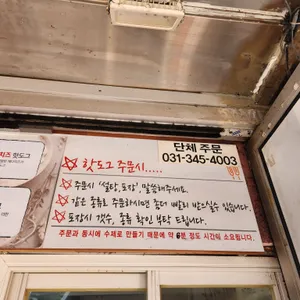 치즈 핫도그
단체 주문
031-345-4003
핫도그 주문시.....
주문시 '설탕, 포장', 말씀해주세요.
같은 종류로 주문하시면 좀더 빨리 받으실수 있습니다.
포장시 갯수, 종류 확인 부탁 드립니다.
주문과 동시에 수제로 만들기 때문에 약 6분 정도 시간이 소요됩니다.